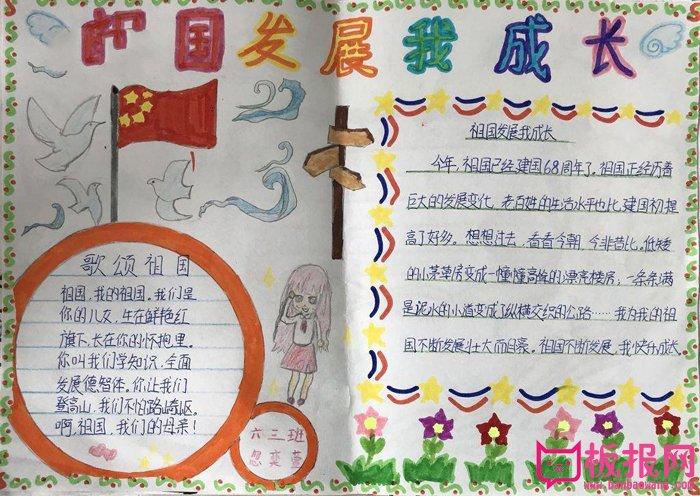 祖国发展我成长
祖国发展我成长
今年,祖国已经建国68周年了。祖国正经历着
巨大的发展变化,老百姓的生活水平也比建国初提
高了好多。想想过去,看看今朝,今非昔比。低矮
的小茅草房变成一幢幢高耸的小漂亮楼房;一条条满
是泥水的小道变成了纵横交织的公路……我为我的祖
国不断发展壮大而自豪。祖国不断发展,我快乐成长
歌颂祖国
祖国,我的祖国。我们是
你的儿女,生在鲜艳红
旗下,长在你的怀抱里。
你叫我们学知识,全面
发展德智体。你让我们
登高山,我们不怕路崎岖。
啊,祖国,我们的母亲!
六三班
板报网
www.banbaowang.com